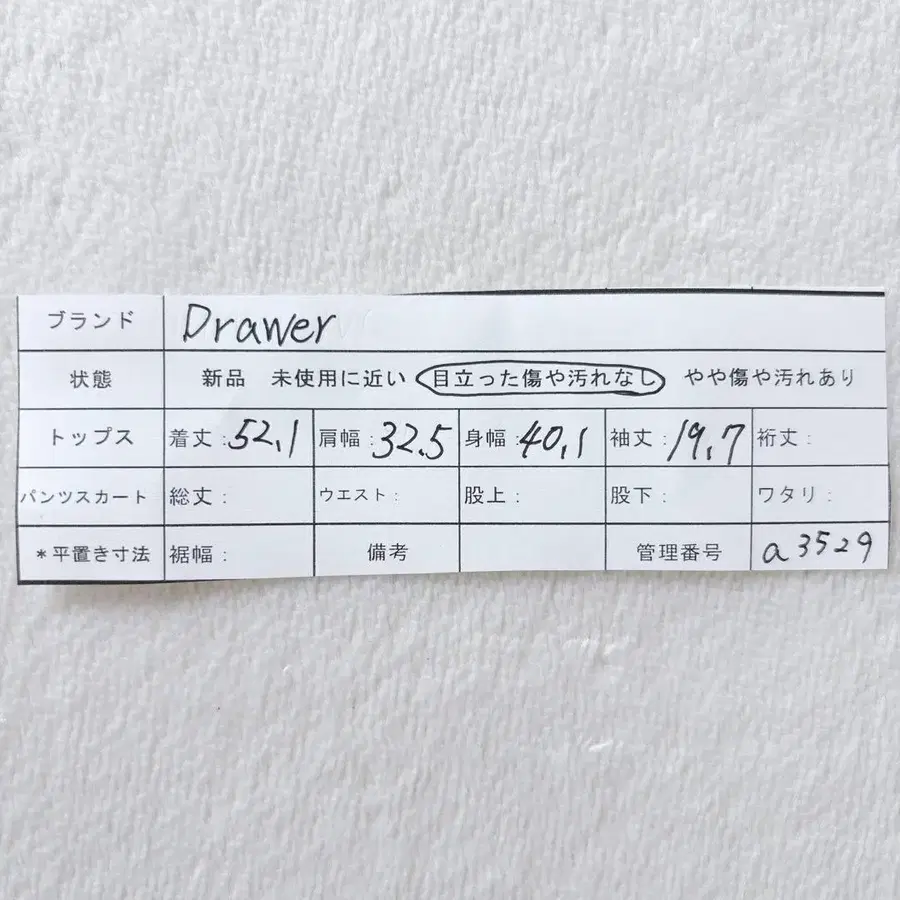 ブランド Drawer
状態 新品 未使用に近い 目立った傷や汚れなし やや傷や汚れあり
トップス 着丈:52.1 肩幅:32.5 身幅:40.1 袖丈:19.7 裄丈:
パンツスカート 総丈: ウエスト: 股上: 股下: ワタリ:
*平置き寸法 裾幅: 備考 管理番号 a3529